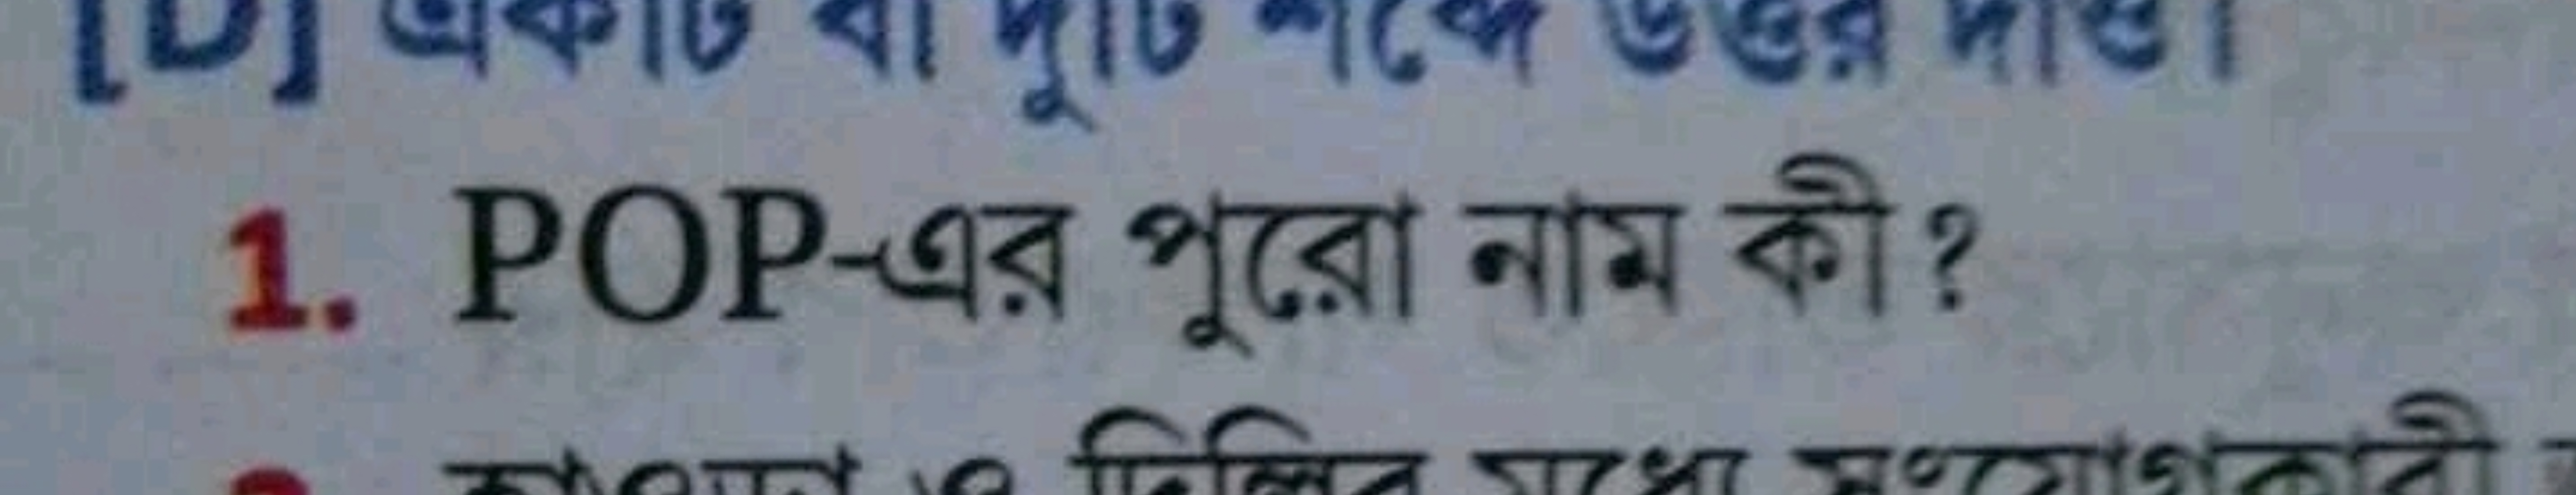 [D] একটি বা দুটি শব্দে উত্তর দাও।
1. POP-এর পুরো নাম কী?
ও দিল্লির মধ্যে সংযোগকারী